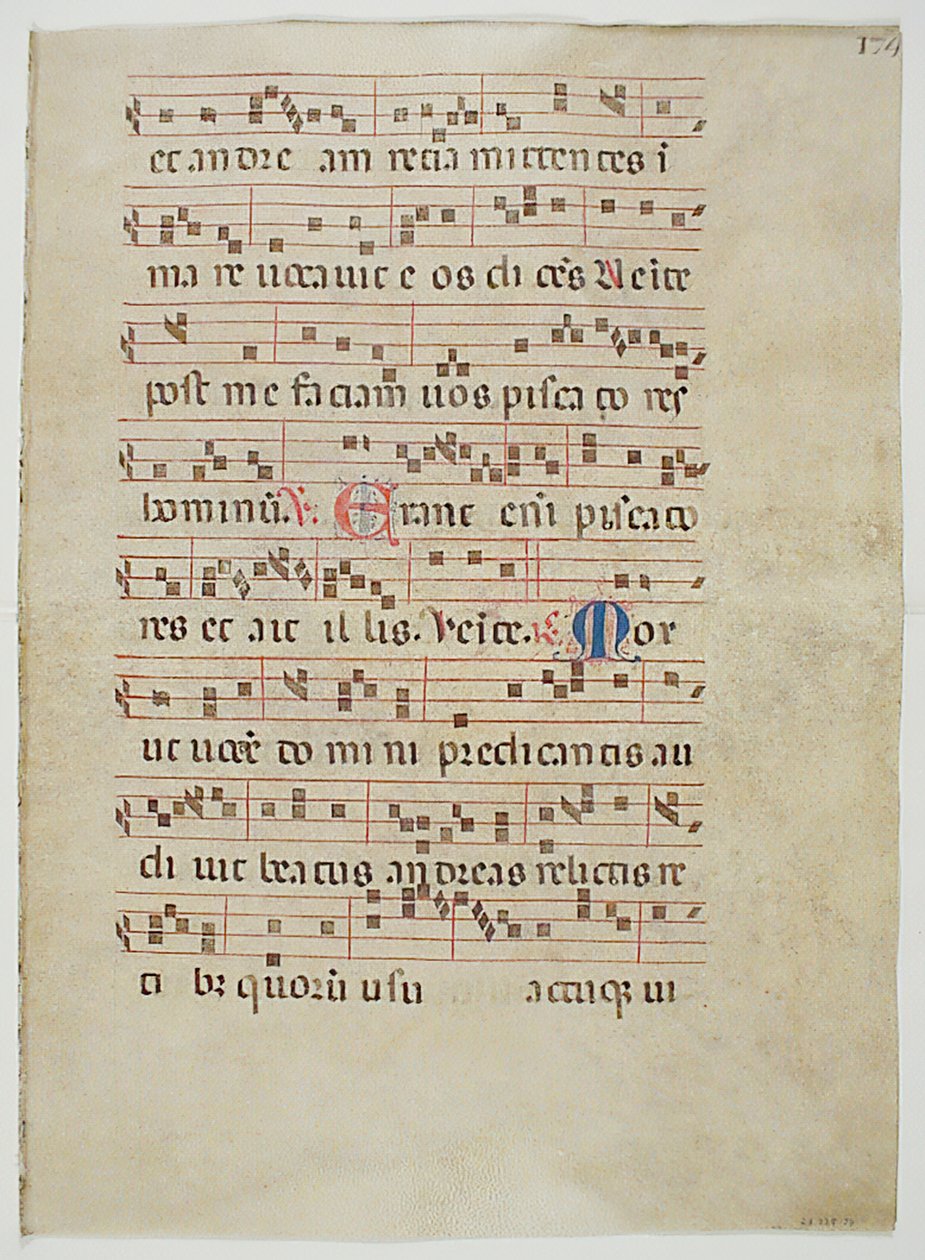 174
et andre am retia mittentes i
ma re uocauit e os di cēs Ueīte
post me faciam uos pisca to res
hominū. ℣. Erant eni pisca to
res et ait il lis. Ueīte. ℟. Mox
ut uocē do mi ni predicantis au
di uit beatus andreas relictis re
ti bꝫ quorū usu actuqꝫ ui